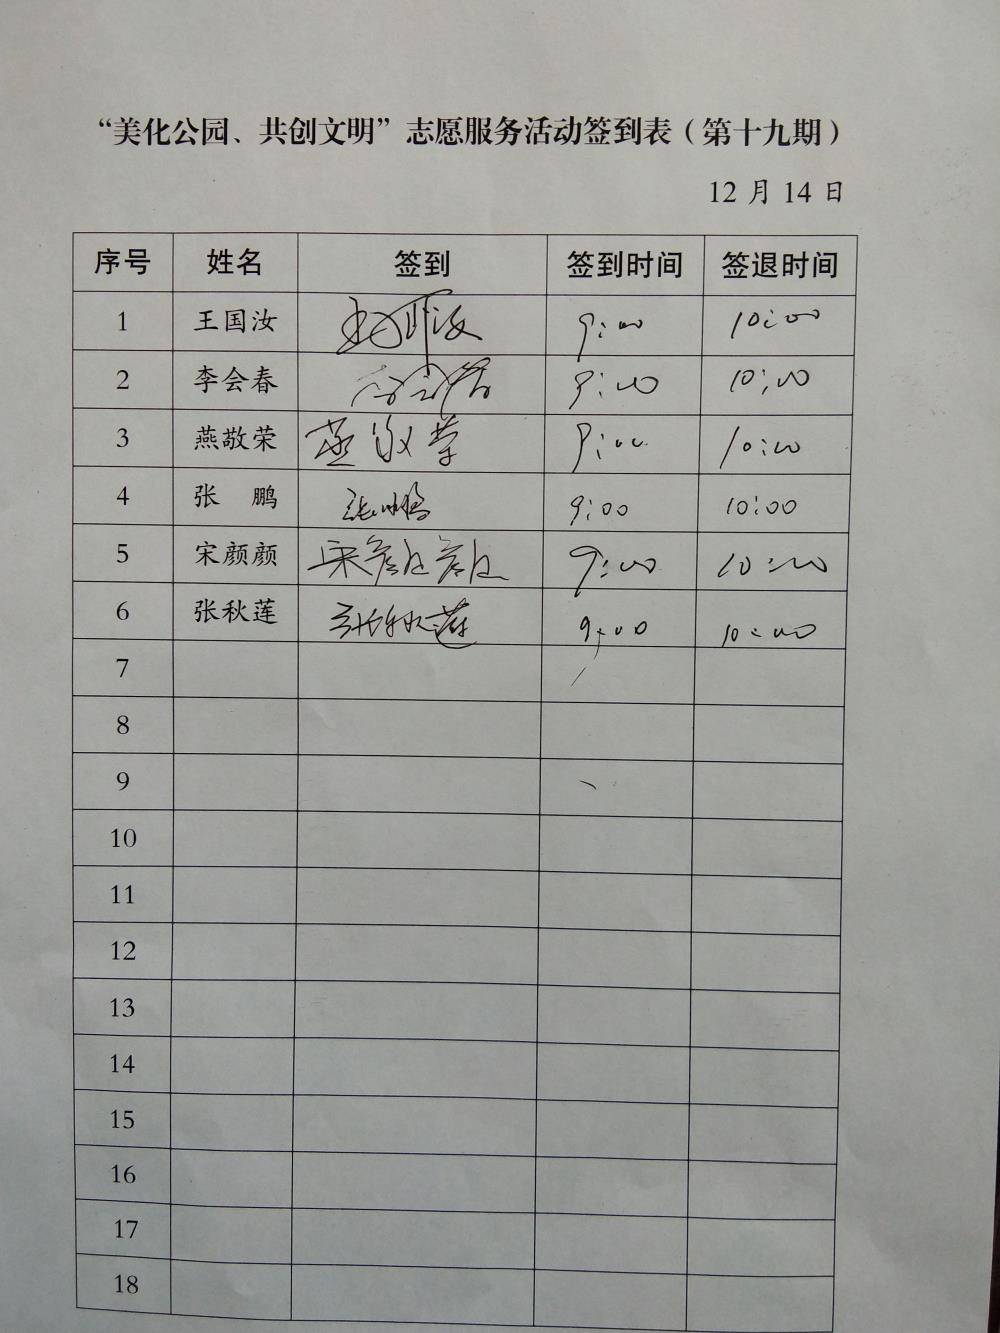 “美化公园、共创文明”志愿服务活动签到表（第十九期）
12 月 14 日
序号 姓名 签到 签到时间 签退时间
1 王国汝 9:00 10:00
2 李会春 李会春 9:00 10:00
3 燕敬荣 燕敬荣 9:00 10:00
4 张 鹏 张鹏 9:00 10:00
5 宋颜颜 宋颜颜 9:00 10:00
6 张秋莲 张秋莲 9:00 10:00
7
8
9
10
11
12
13
14
15
16
17
18